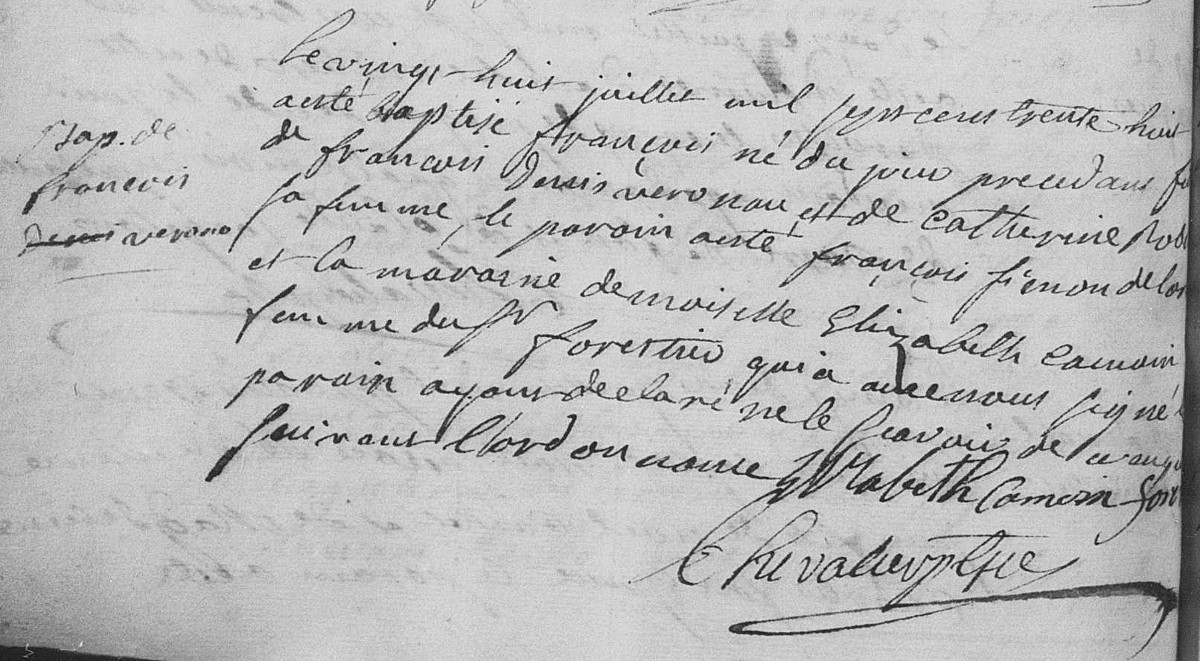 Bap. de
francois
denis verono
le vingt huit juillet mil sept cens trente huit
a esté baptisé françois né du jour precedans
de françois denis veronau et de catherine
sa femme, le parain a esté françois
et la maraine demoiselle Elizabeth camoin
femme du Sr forestier qui a avec nous signé
parain ayant declaré ne le scavoir de ce
suivant l'ordonnance Elizabeth Camoin
Chevalier ptre